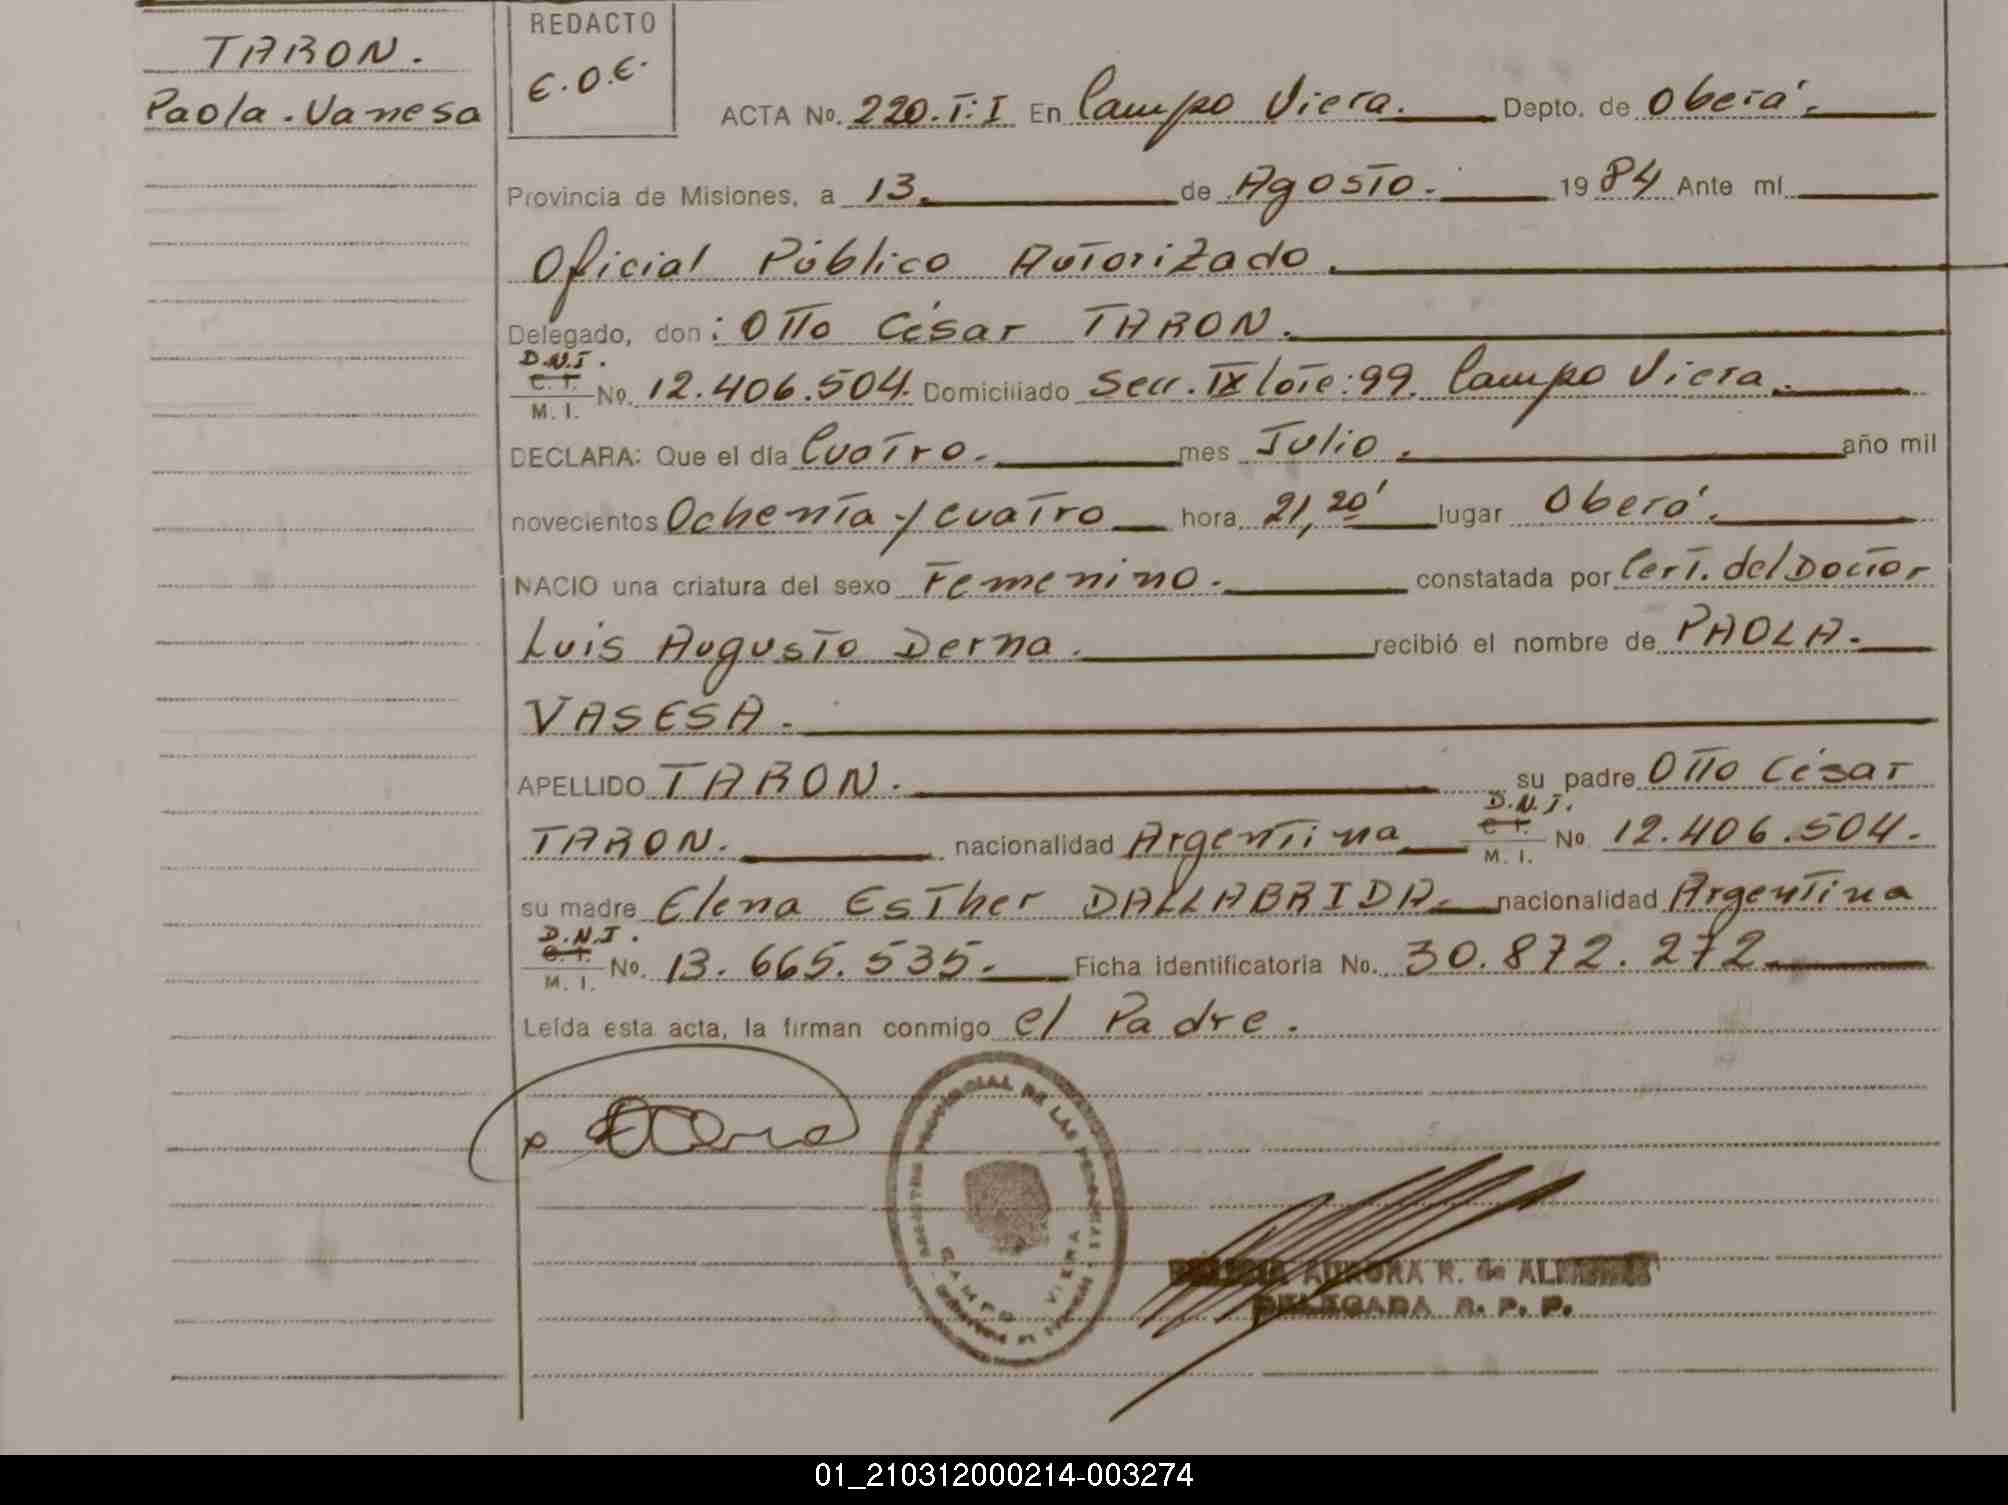 TARON.
Paola. Vanesa
REDACTO
E.O.E.
ACTA No. 220.T:I En Campo Viera. Depto. de Oberá.
Provincia de Misiones, a 13. de Agosto. 1984 Ante mí
Oficial Público Autorizado.
Delegado, don: Otto César TARON.
D.N.I.
C. I.
M. I.
No. 12.406.504. Domiciliado Secc. IX lote: 99. Campo Viera.
DECLARA: Que el día Cuatro. mes Julio. año mil
novecientos Ochenta y cuatro hora 21,20' lugar Oberá.
NACIO una criatura del sexo Femenino. constatada por Cert. del Doctor
Luis Augusto Derna. recibió el nombre de PAOLA.
VASESA.
APELLIDO TARON. su padre Otto César
D.N.I.
C. I.
M. I.
TARON. nacionalidad Argentina No. 12.406.504.
su madre Elena Esther DALLABRIDA. nacionalidad Argentina
D.N.I.
C. I.
M. I.
No. 13.665.535. Ficha identificatoria No. 30.872.272
Leída esta acta, la firman conmigo el Padre.
PROVINCIAL DE LAS PERSONAS
CAMPO VIERA
AURORA R. de
DELEGADA R. P. P.
01_210312000214-003274